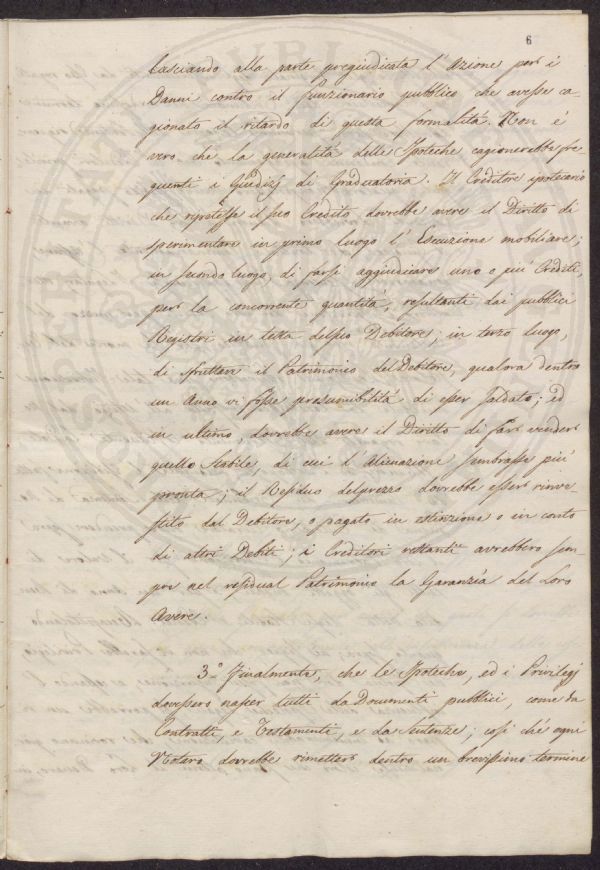 6
lasciando alla parte pregiudicata l'Azione per i
Danni contro il funzionario pubblico che avesse ca-
gionato il ritardo di questa formalità. Non è
vero, che la generalità delle Ipoteche cagionerebbe fre-
quenti i Giudizj di Graduatoria. Il Creditore ipotecario
che ripetesse il suo Credito dovrebbe avere il Diritto di
sperimentare in primo luogo l'Esecuzione mobiliare;
in secondo luogo, di farsi aggiudicare uno o più Crediti,
per la concorrente quantità, resultanti dai pubblici
Registri in testa dello Debitore; in terzo luogo,
di sfruttare il Patrimonio del Debitore, qualora dentro
un Anno vi fosse presumibilità di esser saldato; ed
in ultimo, dovrebbe avere il Diritto di far vendere
quello Stabile, di cui l'Alienazione sembrasse più
pronta; il Residuo del prezzo dovrebbe esser rinve-
stito dal Debitore, o pagato in estinzione o in conto
di altri Debiti; i Creditori restanti avrebbero sem-
pre nel residual Patrimonio la Garanzia del Loro
Avere.
3.° Finalmente, che le Ipoteche, ed i Privilegj
dovessero nascer tutti da Documenti pubblici, come da
Contratti, e Testamenti, e da Sentenze; così che ogni
Notaro dovrebbe rimettere dentro un brevissimo termine